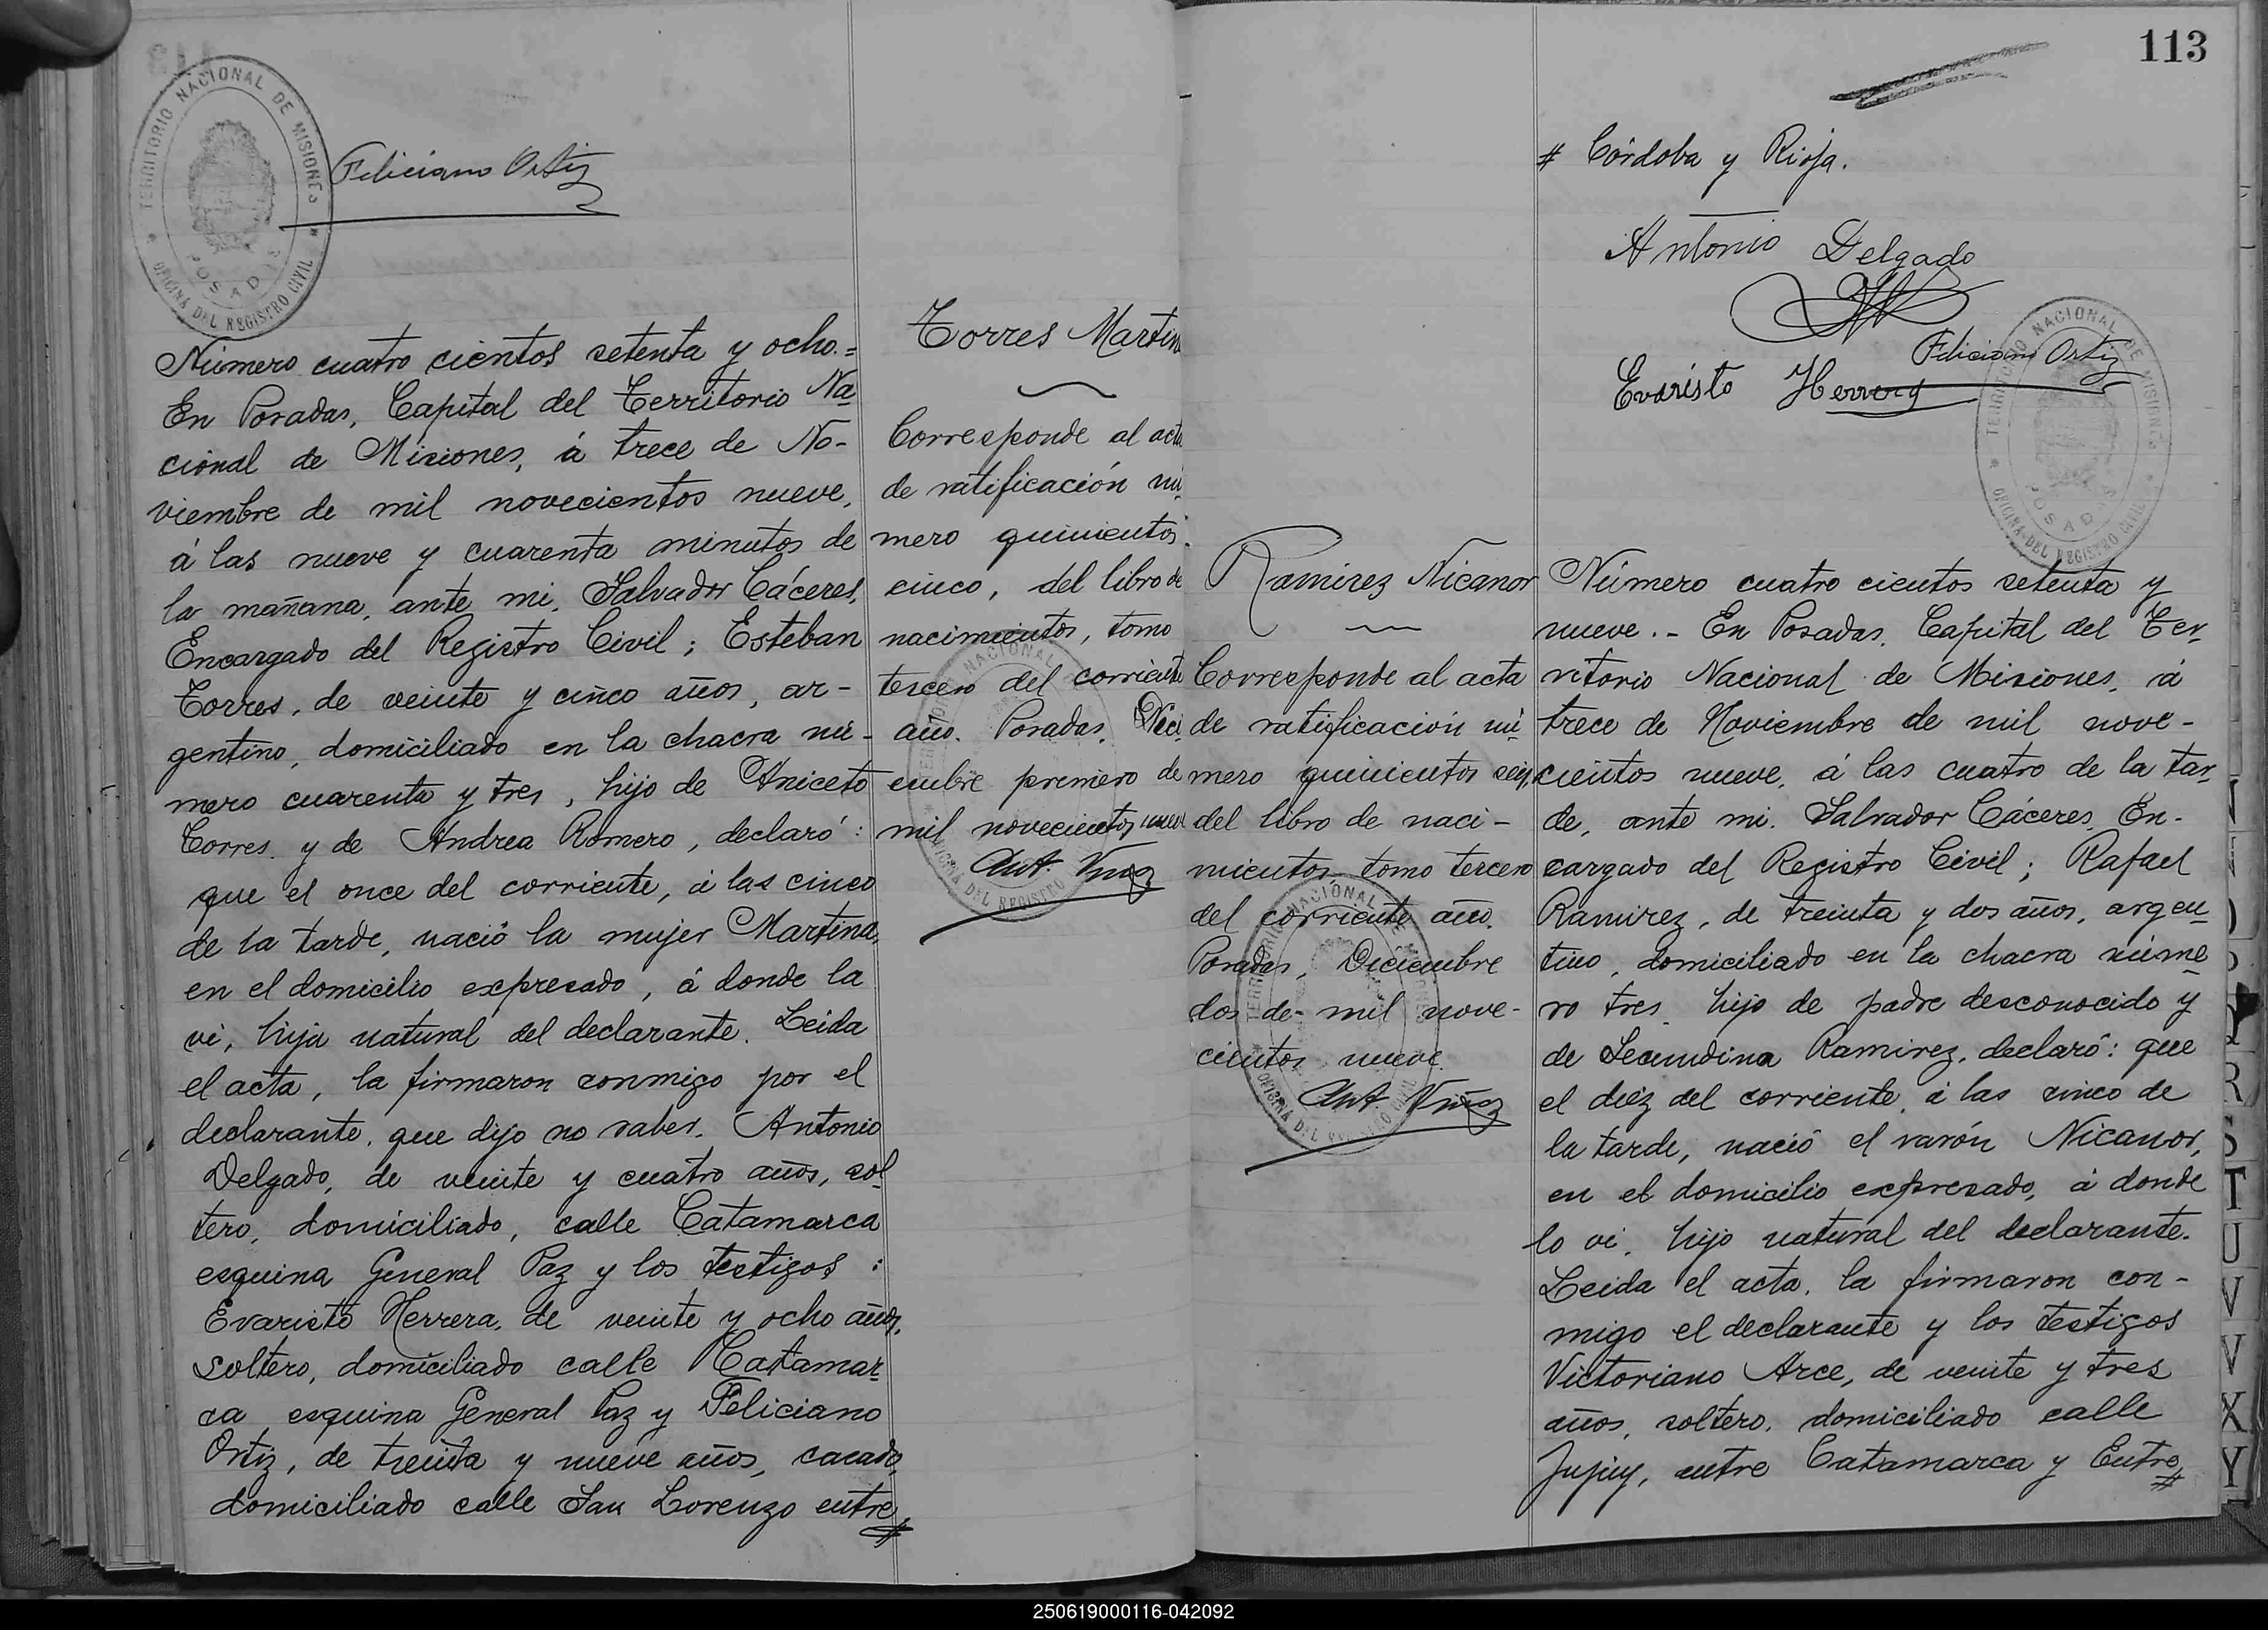 TERRITORIO NACIONAL DE MISIONES
OFICINA DEL REGISTRO CIVIL
POSADAS
Feliciano Ortiz
Número cuatro cientos setenta y ocho.=
En Posadas, Capital del Territorio Na
cional de Misiones, á trece de No-
viembre de mil novecientos nueve,
á las nueve y cuarenta minutos de
la mañana, ante mi, Salvador Cáceres,
Encargado del Registro Civil; Esteban
Torres, de veinte y cinco años, ar-
gentino, domiciliado en la chacra nú-
mero cuarenta y tres, hijo de Aniceto
Torres y de Andrea Romero, declaró:
que el once del corriente, á las cinco
de la tarde, nació la mujer Martina,
en el domicilio expresado, á donde la
vi, hija natural del declarante. Leida
el acta, la firmaron conmigo por el
declarante, que dijo no saber, Antonio
Delgado, de veinte y cuatro años, sol
tero, domiciliado, calle Catamarca
esquina General Paz y los testigos:
Evaristo Herrera, de veinte y ocho años,
soltero, domiciliado calle Catamar
ca esquina General Paz y Feliciano
Ortiz, de treinta y nueve años, casado,
domiciliado calle San Lorenzo entre #
Torres Martin
Corresponde al acta
de ratificación nú
mero quinientos
cinco, del libro de
nacimientos, tomo
tercero del corriente
año. Posadas, Dici
embre primero de
mil novecientos nueve
TERRITORIO NACIONAL
OFICINA DEL REGISTRO
113
# Córdoba y Rioja.
Antonio Delgado
Feliciano Ortiz
Evaristo Herrera
TERRITORIO NACIONAL DE MISIONES
OFICINA DEL REGISTRO CIVIL
POSADAS
Ramirez Nicanor
Corresponde al acta
de ratificación nú
mero quinientos seis,
del libro de naci-
mientos, tomo tercero
del corriente año.
Posadas, Diciembre
dos de mil nove-
cientos nueve.
TERRITORIO NACIONAL DE MISIONES
OFICINA DEL REGISTRO CIVIL
Número cuatro cientos setenta y
nueve.- En Posadas, Capital del Ter-
ritorio Nacional de Misiones, á
trece de Noviembre de mil nove-
cientos nueve, á las cuatro de la tar
de, ante mi, Salvador Cáceres, En-
cargado del Registro Civil; Rafael
Ramirez, de treinta y dos años, argen
tino, domiciliado en la chacra núme
ro tres, hijo de padre desconocido y
de Secundina Ramirez, declaró: que
el diéz del corriente, á las cinco de
la tarde, nació el varón Nicanor,
en el domicilio expresado, á donde
lo vi, hijo natural del declarante.
Leida el acta, la firmaron con-
migo el declarante y los testigos
Victoriano Arce, de veinte y tres
años, soltero, domiciliado calle
Jujuy, entre Catamarca y Entre #
R
S
T
U
V
V
X
Y
250619000116-042092